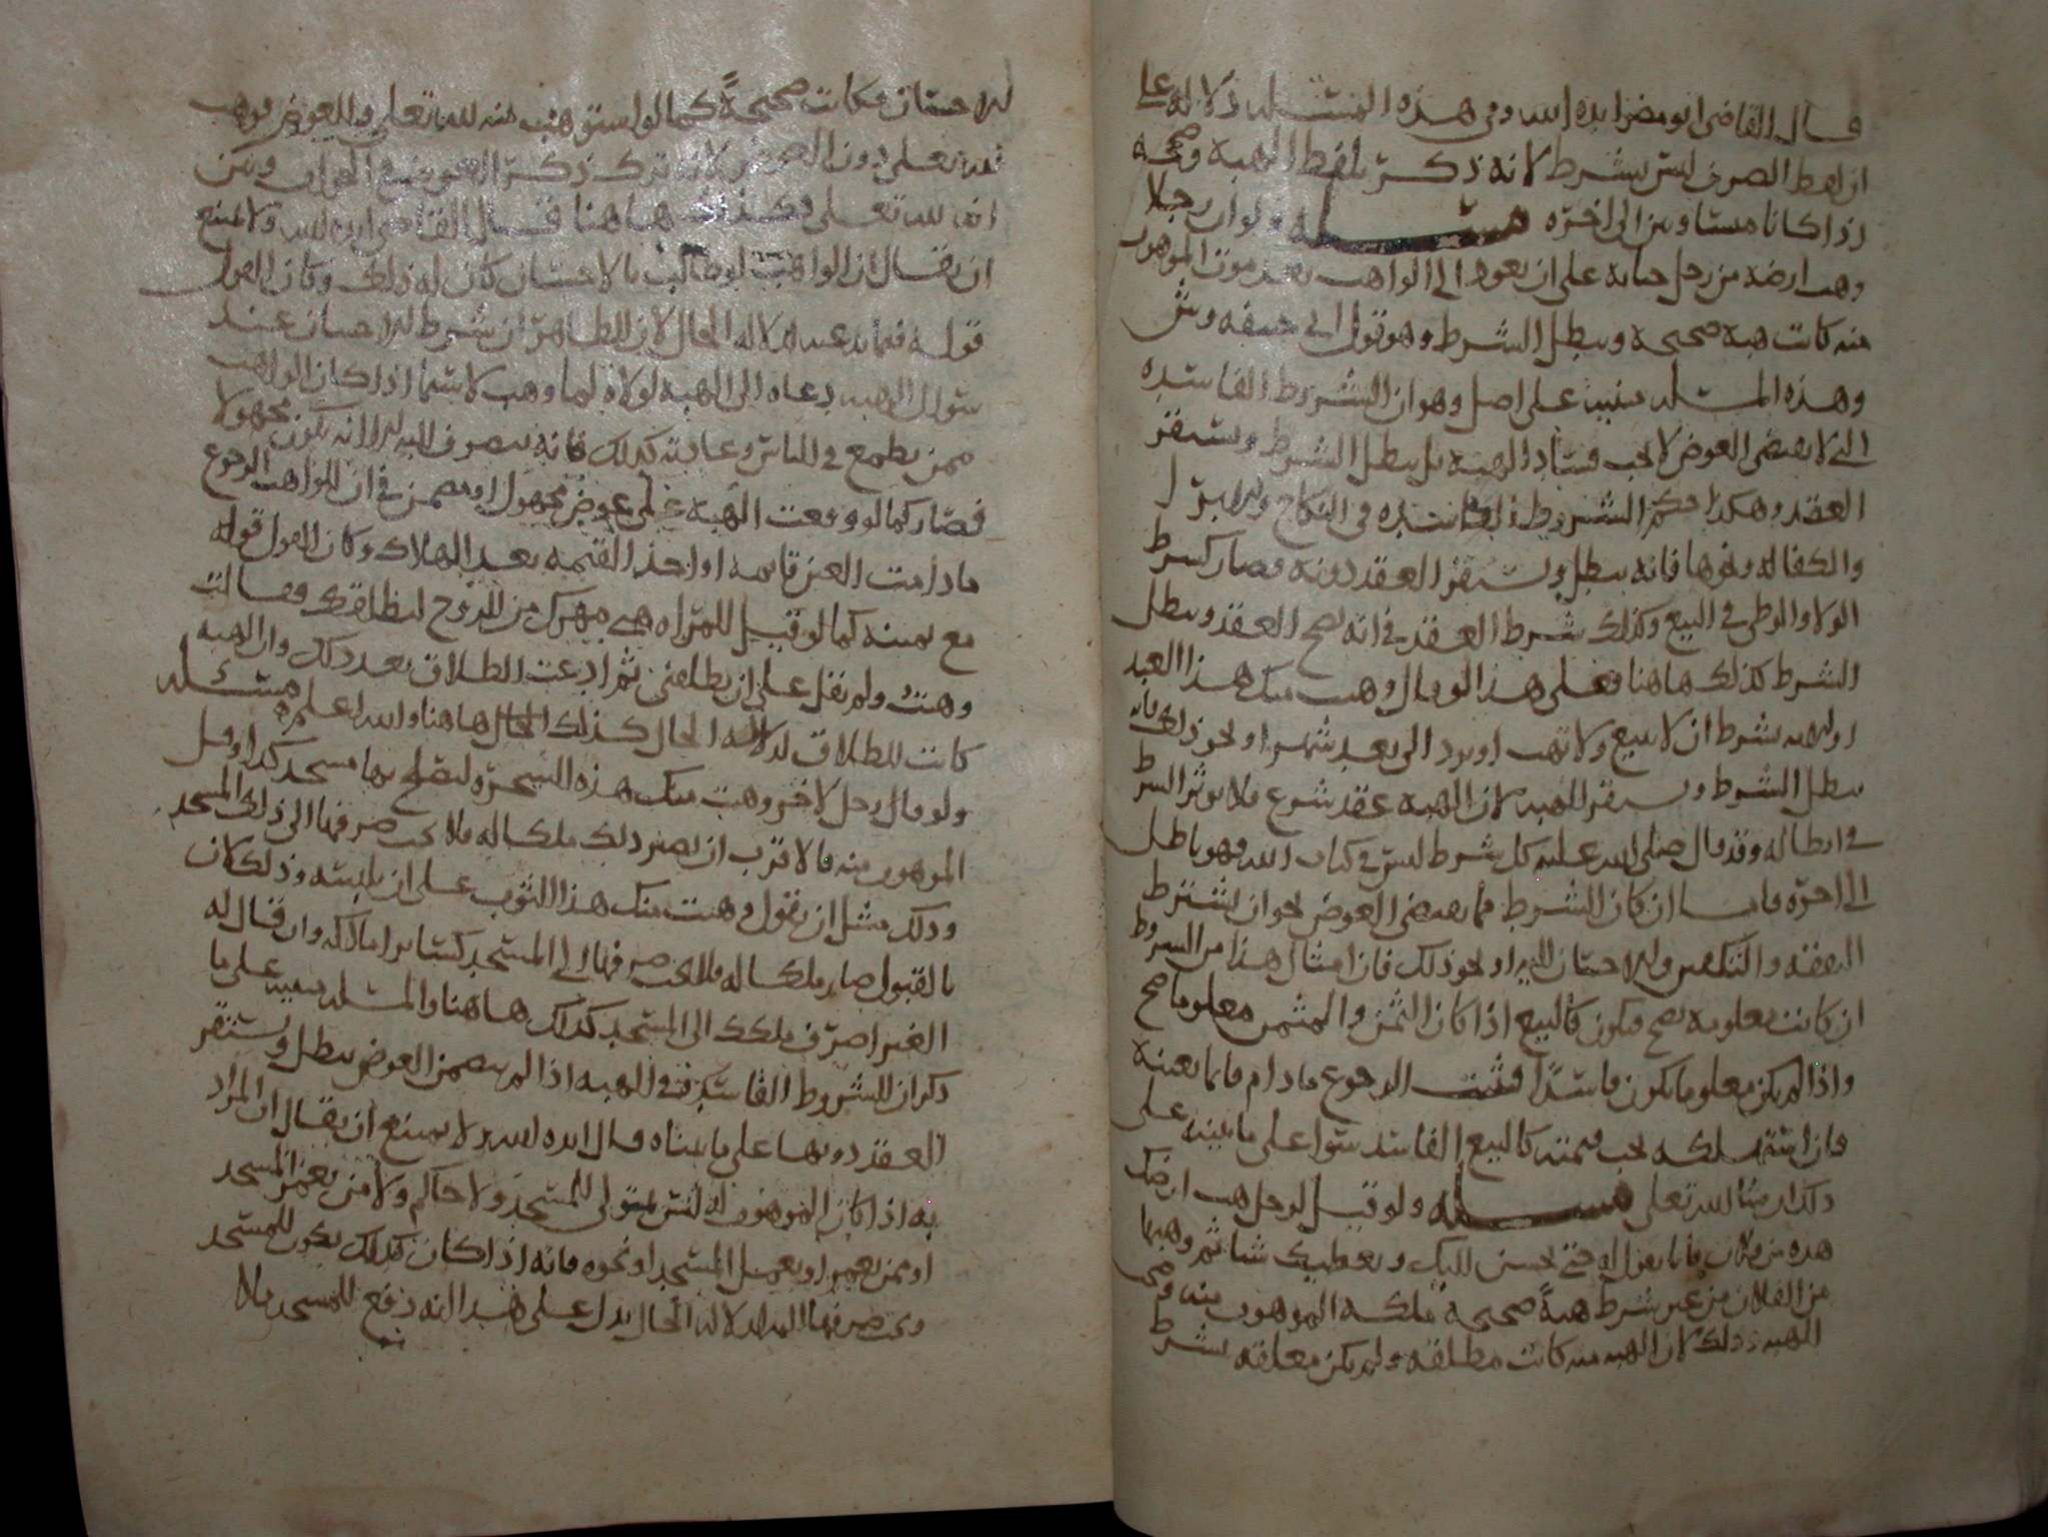 قال القاضي ابو مضر ايده الله وفي هذه المسئله دلاله على
ان لفظ الصرف ليس بشرط لانه ذكر بلفظ الهبة وصحه
اذا كانا متساويين الى اخره مسئله ولو ان رجلا
وهب ارضه من رجل حياته على ان يعود الى الواهب بعد موت الموهوب
منه كانت هبة صحيحة ويبطل الشرط وهو قول ابي حنيفه وش
وهذه المسئله مبنيه على اصل وهو ان الشروط الفاسده
التي لا يقتضي العوض لا يجب فساد الهبة بل يبطل الشرط ويستقر
العقد وهكذا حكم الشروط الفاسده في النكاح
والكفاله ونحوها فانه يبطل ويستقر العقد دونه فصار كشرط
الولا والوطى في البيع وكذلك شرط العقد في انه يصح العقد ويبطل
الشرط كذلك هاهنا فعلى هذا لو قال وهبت منك هذا العبد
بشرط ان لا يبيع ولا تهب او يرد الي بعد شهر او نحو ذلك فانه
يبطل الشرط ويستقر الهبه لان الهبه عقد شرع فلا يوثر الشرط
في ابطاله وقد قال صلى الله عليه كل شرط ليس في كتاب الله فهو باطل
الى اخره فاما ان كان الشرط مما يقتضي العوض نحو ان يشترط
النفقه والتكفين والاحسان اليه او نحو ذلك فان امثال هذا من الشروط
ان كانت معلومه يصح فيكون كالبيع اذا كان الثمن والمثمن معلوما صح
واذا لم يكن معلوما يكون فاسدًا فيثبت الرجوع ما دام قائما بعينه
فان استهلكه يجب قيمته كالبيع الفاسد سوا على ما يبينه على
ذلك ان شا الله تعلى مسئله ولو قيل لرجل هب ارضك
هذه من فلان حتى يحسن اليك ويعطيك شيا ثم وهبها
من الفلان من غير شرط هبةً صحيحة ملكه الموهوب منه وصحت
الهبه وذلك لان الهبه منه كانت مطلقه ولم يكن معلقه بشرط
الاحسان فكانت صحيحةً كما لو استوهب منه لله تعلى وللعوض فوهب
لله تعلى دون العوض لانه ترك ذكر العوض في الجواب
لله تعلى وكذلك هاهنا قال القاضي ايده الله ولا يمتنع
ان يقال ان الواهب لو طالب بالاحسان كان له ذلك وكان القول
قوله فيما يدعيه لدلاله الحال لان الظاهر ان شرط الاحسان عند
سوال الهبه دعاه الى الهبه لولاه لما وهب لا سيما اذا كان الواهب
ممن يطمع في الناس وعادته كذلك فانه ينصرف اليه الا انه يكون مجهولا
فصار كما لو وقعت الهبة على عوض مجهول في ان للواهب الرجوع
ما دامت العين قايمه او اخذ القيمه بعد الهلاك وكان القول قوله
مع يمينه كما لو قيل للمراه هبي مهرك من الزوج ليطلقك فقالت
وهبتُ ولم تقل على ان يطلقني ثم ادعت الطلاق بعد ذلك وان الهبه
كانت للطلاق لدلالة الحال كذلك الحال هاهنا والله اعلم مسئله
ولو قال رجل لاخر وهبت منك هذه الشجرة ليصلح بها مسجد كذا وقبل
الموهوب منه فالاقرب ان يصير ذلك ملكا له فلا يجب صرفها الى ذلك المسجد
وذلك مثل ان يقول وهبت منك هذا الثوب على ان يلبسه وذلك لان
بالقبول صار ملكا له فلا يجب صرفها الى المسجد كسائر املاكه وان قال له
الغير اصرف ملكك الى المسجد كذلك هاهنا والمسئله مبنيه على ما
ذكر ان الشروط الفاسدة في الهبه اذا لم يتضمن العوض يبطل ويستقر
العقد دونها على ما بيناه قال ايده الله لا يمتنع ان يقال ان المراد
به اذا كان الموهوب له ليس بمتولى للمسجد ولا حاكم ولا ممن يعمر المسجد
او ممن يعمر او يعمل المسجد او نحوه فانه اذا كان كذلك يكون للمسجد
ويجب صرفها اليه لان دلاله الحال يدل على هذا انه دفع للمسجد فلا